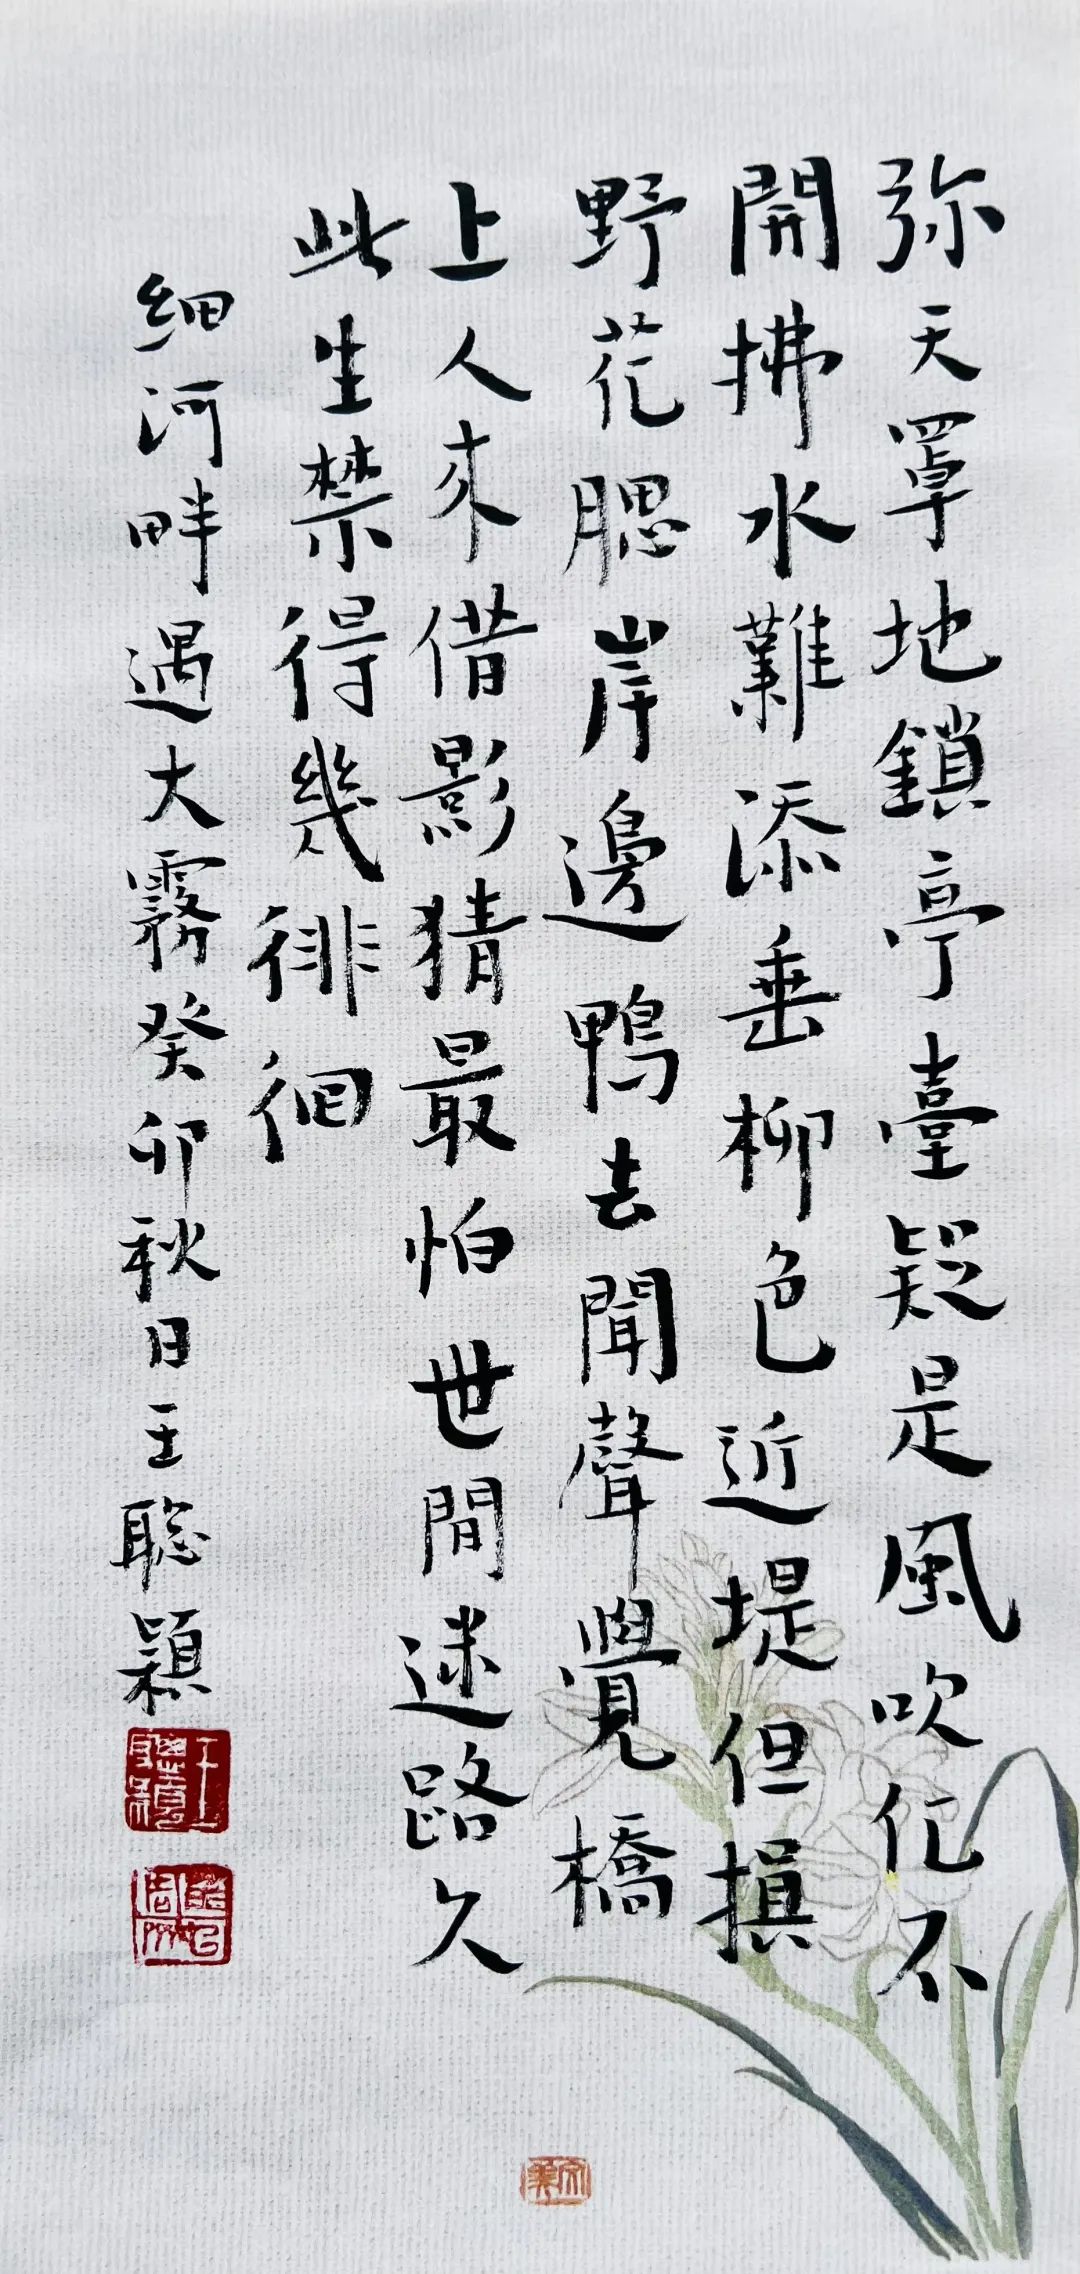 弥天罩地鎖亭臺疑是風吹化不
開拂水難添垂柳色近堤但損
野花腮岸邊鴨去聞聲覺橋
上人來借影猜最怕世間迷路久
此生禁得幾徘徊
细河畔遇大霧癸卯秋日王聪穎